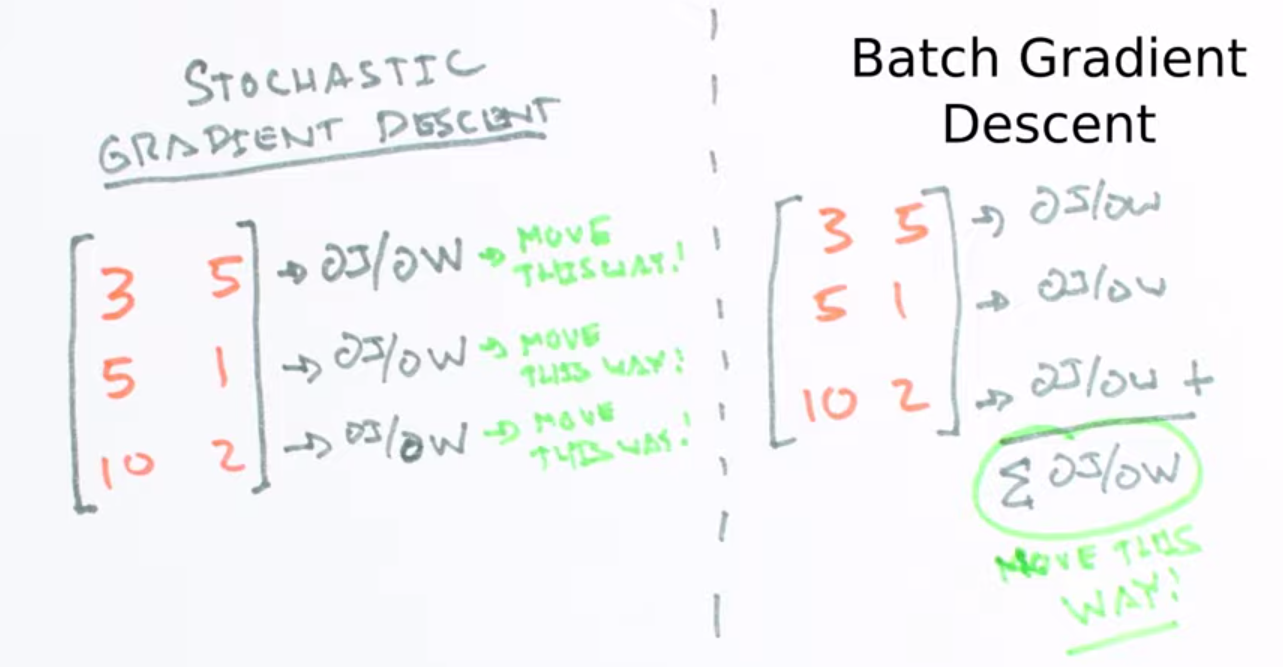 STOCHASTIC
GRADIENT DESCENT
3 5 → ∂J/∂W → MOVE
THIS WAY!
5 1 → ∂J/∂W → MOVE
THIS WAY!
10 2 → ∂J/∂W → MOVE
THIS WAY!
Batch Gradient
Descent
3 5 → ∂J/∂W
5 1 → ∂J/∂W
10 2 → ∂J/∂W +
Σ ∂J/∂W
MOVE THIS
WAY!